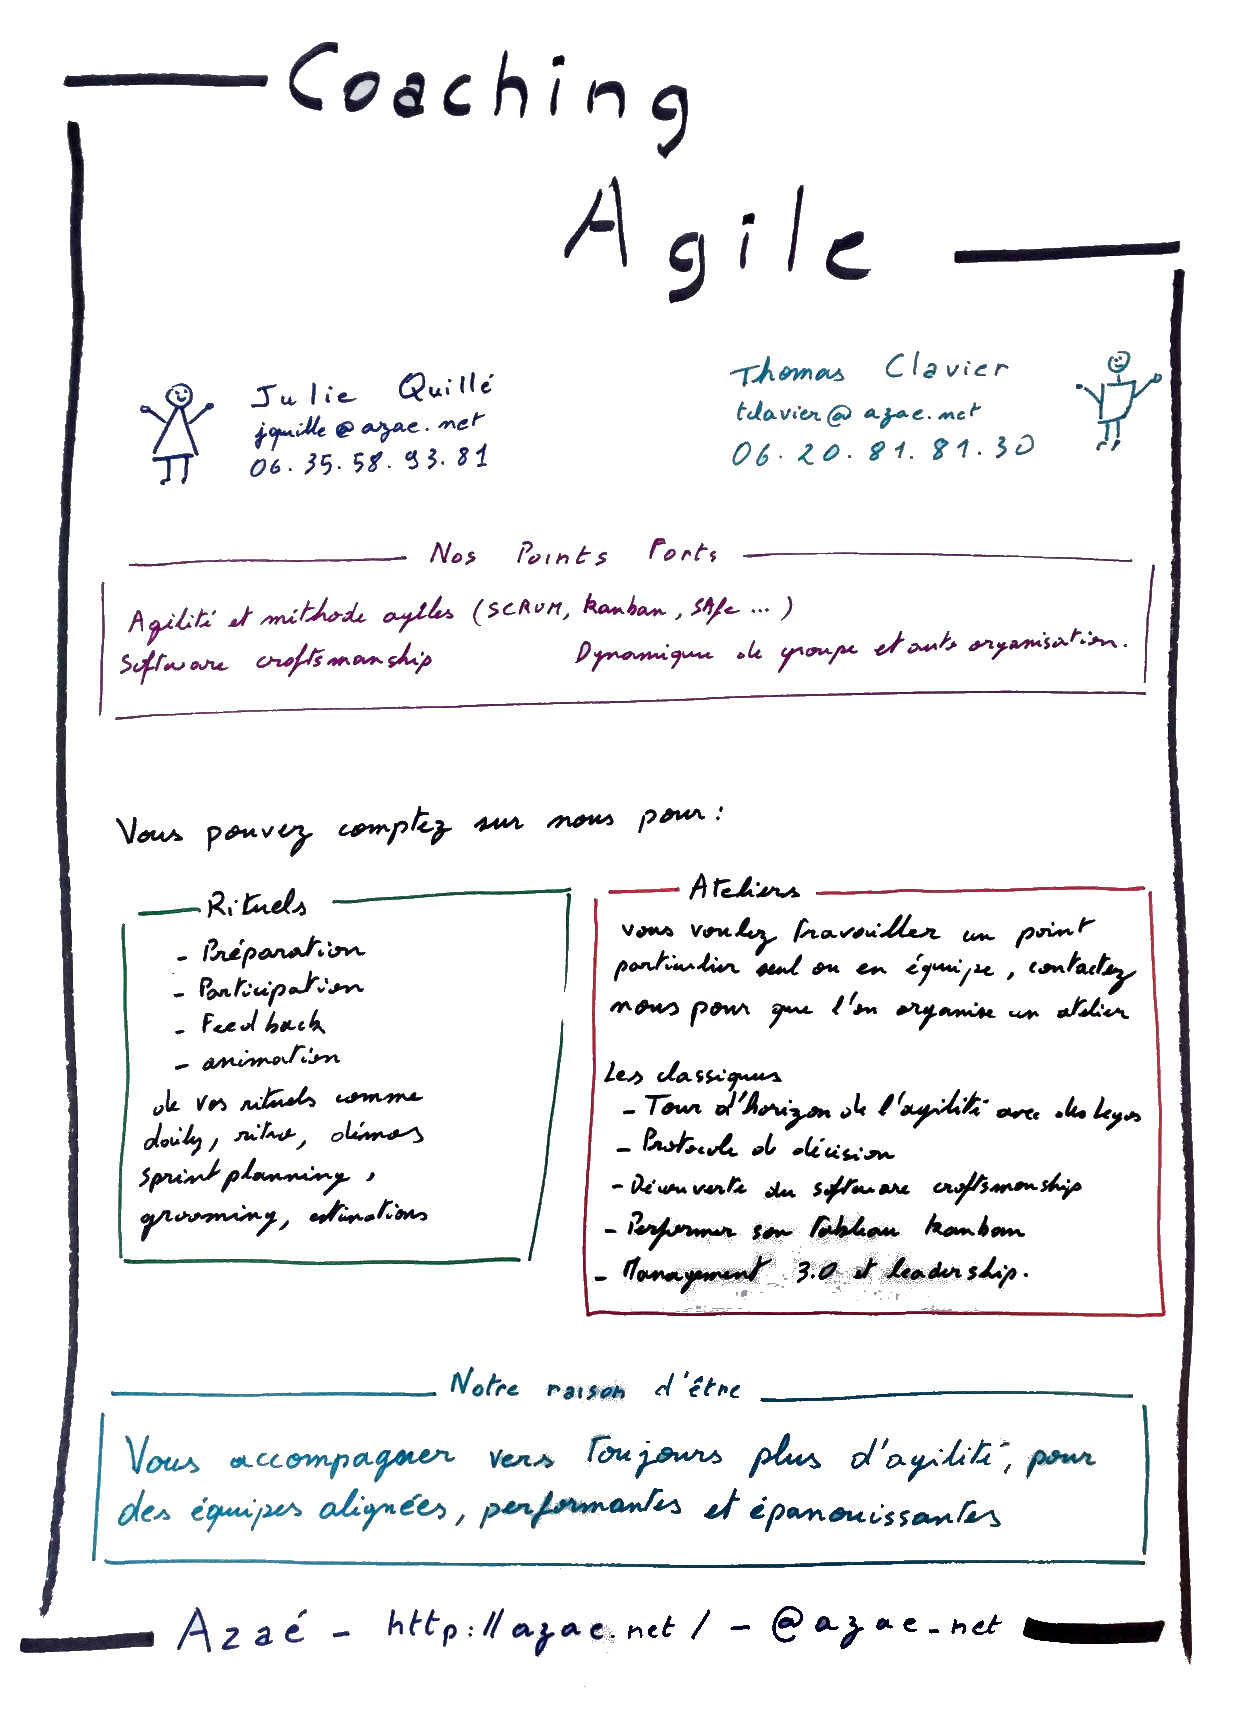 Coaching
Agile
Julie Quillé
jquille@azae.net
06.35.58.93.81
Thomas Clavier
tclavier@azae.net
06.20.81.81.30
Nos Points Forts
Agilité et méthode agiles (SCRUM, kanban, SAFe...)
Software craftsmanship
Dynamique de groupe et auto organisation.
Vous pouvez comptez sur nous pour :
Rituels
- Préparation
- Participation
- Feedback
- animation
de vos rituels comme
daily, rétro, démos
sprint planning,
grooming, estimations
Ateliers
vous voulez travailler un point
particulier seul ou en équipe, contactez
nous pour que l'on organise un atelier
Les classiques
- Tour d'horizon de l'agilité avec des legos
- Protocole de décision
- Découverte du software craftsmanship
- Performer son tableau kanban
- Management 3.0 et leadership.
Notre raison d'être
Vous accompagner vers toujours plus d'agilité, pour
des équipes alignées, performantes et épanouissantes
Azaé - http://azae.net/ - @azae_net